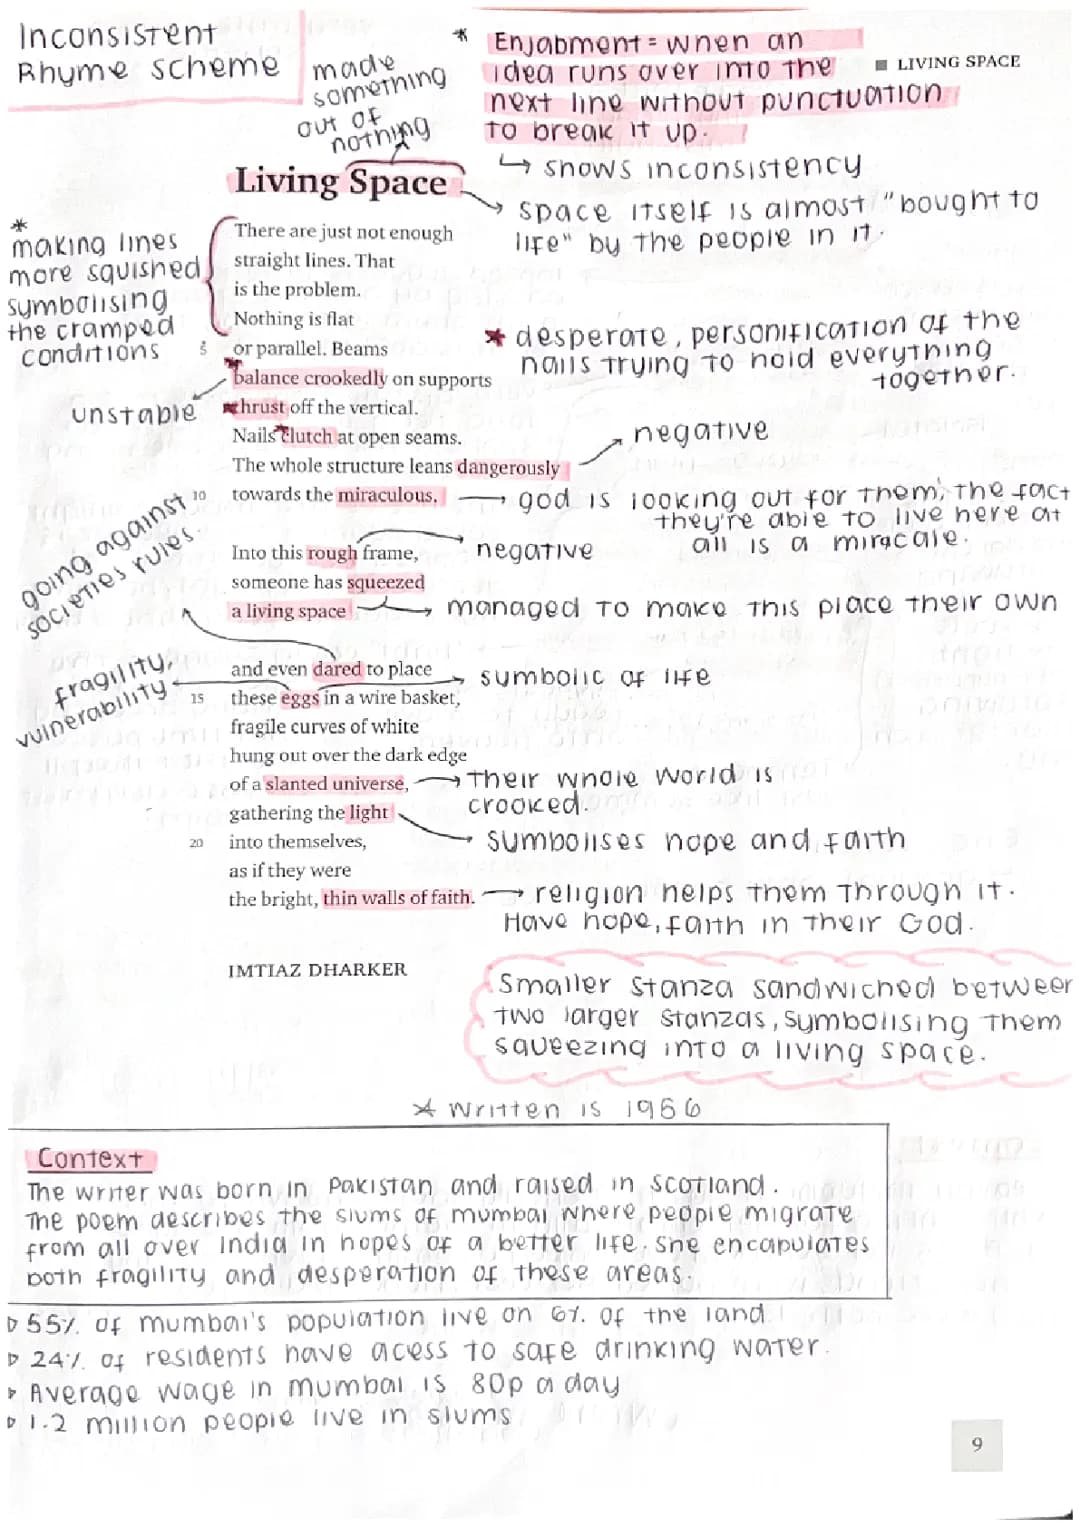 Inconsistent
Rhyme scheme
made
something
out of
nothing
* Enjabment = when an
idea runs over into the
next line without punctuation
to break it up.
↳ shows inconsistency
■ LIVING SPACE
Living Space
space itself is almost "bought to
life" by the people in it.
*
making lines
more squished
symbolising
the cramped
conditions
There are just not enough
straight lines. That
is the problem.
Nothing is flat
5 or parallel. Beams
balance crookedly on supports
thrust off the vertical.
Nails clutch at open seams.
The whole structure leans dangerously
10 towards the miraculous.
* desperate, personification of the
nails trying to hold everything
together.
unstable
negative
god is looking out for them, the fact
they're able to live here at
all is a miracale.
going against
societies rules
Into this rough frame,
someone has squeezed
a living space
negative
managed to make this place their own
fragility,
vulnerability
and even dared to place
15 these eggs in a wire basket,
fragile curves of white
hung out over the dark edge
of a slanted universe,
gathering the light
20 into themselves,
as if they were
the bright, thin walls of faith.
symbolic of life
their whole world is
crooked.
symbolises hope and faith
religion helps them through it.
Have hope, faith in their God.
IMTIAZ DHARKER
Smaller stanza sandwiched between
two larger stanzas, symbolising them
squeezing into a living space.
* Written is 1956
Context
The writer was born in Pakistan and raised in Scotland.
The poem describes the slums of mumbai where people migrate
from all over India in hopes of a better life. she encapulates
both fragility and desperation of these areas.
▹ 55% of mumbai's population live on 6% of the land.
▹ 24% of residents have acess to safe drinking water.
▹ Average wage in mumbai is 80p a day
▹ 1.2 million people live in slums
9